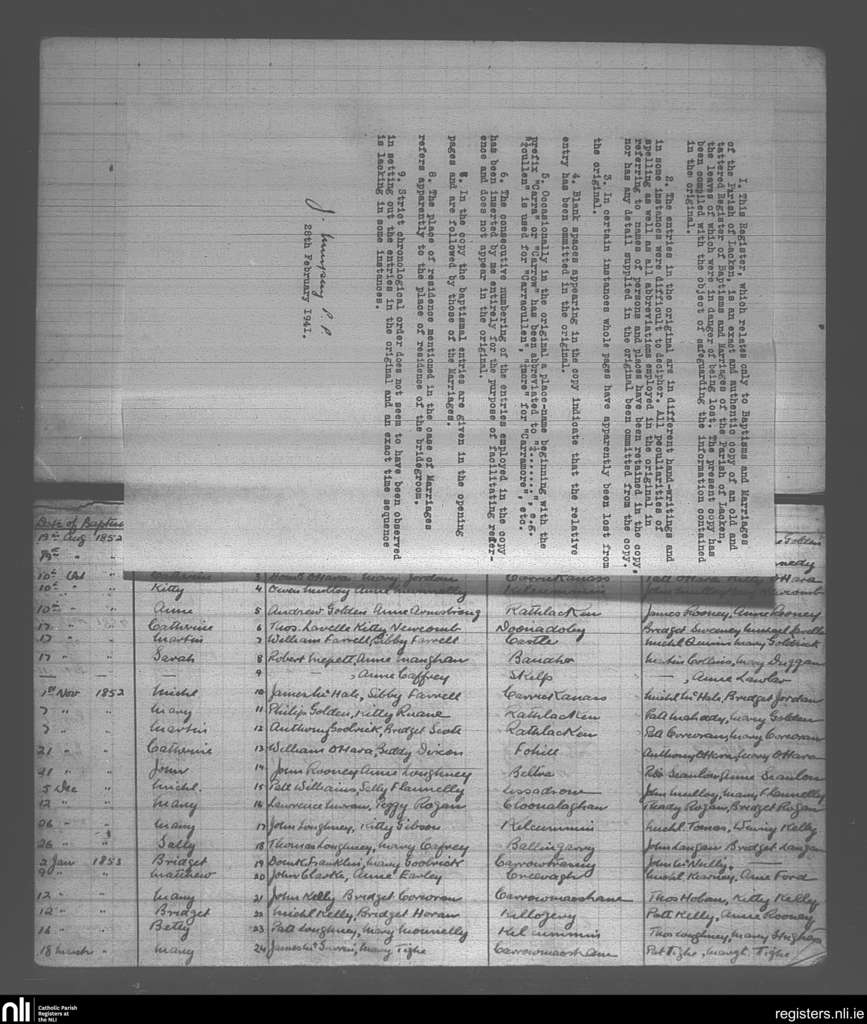 1. This Register, which relates only to Baptisms and Marriages
of the Parish of Lacken, is an exact and authentic copy of an old and
tattered Register of Baptisms and Marriages of the Parish of Lacken,
the leaves of which were in danger of being lost. The present copy has
been compiled with the object of safeguarding the information contained
in the original.
2. The entries in the original are in different hand-writings and
in some instances were difficult to decipher. All peculiarities of
spelling as well as all abbreviations employed in the original in
referring to names of persons and places have been retained in the copy,
nor has any detail supplied in the original been ommitted from the copy.
3. In certain instances whole pages have apparently been lost from
the original.
4. Blank spaces appearing in the copy indicate that the relative
entry has been ommitted in the original.
5. Occasionally in the original a place-name beginning with the
prefix "Carra" or "Carrow" has been abbreviated to "¼.......", e.g.
"¼cullen" is used for "Carracullen", "¼more" for "Carramore", etc.
6. The consecutive numbering of the entries employed in the copy
has been inserted by me entirely for the purpose of facilitating refer-
ence and does not appear in the original.
8. In the copy the baptismal entries are given in the opening
pages and are followed by those of the Marriages.
8. The place of residence mentioned in the case of Marriages
refers apparently to the place of residence of the bridegroom.
9. Strict chronological order does not seem to have been observed
in setting out the entries in the original and an exact time sequence
is lacking in some instances.
P. P.
28th February 1941.
Date of Baptism
Aug 1852 Golden
10th Oct 3 O'Hara Mary Jordan Carrickanass Patt O'Hara O'Hara
10th " Kitty 4 Owen Anne Kilcummin
10th " Anne 5 Andrew Golden Anne Armstrong Rathlacken James Rooney, Anne Rooney
17 " Catherine 6 Thos. Lavelle Kitty Newcomb Doonadoby Bridget Sweeney Michael Lavelle
17 " Martin 7 William Farrell, Sibby Farrell Castle Michl Mary Goldrick
17 " Sarah 8 Robert Anne Maughan Banagher Martin Collins, Mary Duggan
— — — 9 — , Anne Caffrey Skelp — , Anne Lawlor
1st Nov 1852 Michl 10 James McHale, Sibby Farrell Carrickanass Michl McHale, Bridget Jordan
7 " " Mary 11 Philip Golden, Kitty Ruane Rathlacken Patt Mahady, Mary Golden
7 " " Martin 12 Anthony Goolrick, Bridget Scott Rathlacken Patt Corcoran, Mary Corcoran
21 " " Catherine 13 William O'Hara, Biddy Dixon Fohill Anthony O'Hara, Mary O'Hara
21 " " John 14 John Rooney Anne Loughney Beltra Patt Scanlon Anne Scanlon
5 Dec Michl. 15 Patt Williams, Sally Flannelly Lissadrone John Mulloy, Mary Flannelly
12 " Mary 16 Lawrence Peggy Rogan Cloonalaghan Thady Rogan, Bridget Rogan
26 " " Mary 17 John Loughney, Kitty Gibson Kilcummin Michl Tomas, Winny Kelly
26 " " Sally 18 Thomas Loughney, Mary Cafrey Ballingarry John Langan Bridget Langan
2 Jan 1853 Bridget 19 Domk Franklin, Mary Goolrick John McNully. —
9 " " Matthew 20 John Clarke, Anne Earley Creevagh Michl Kearney, Anne Ford
12 " " Mary 21 John Kelly Bridget Corcoran Carrowmacshane Thos Hoban, Kitty Kelly
12 " " Bridget 22 Michl Kelly, Bridget Horan Killogeny Patt Kelly, Anne Rooney
16 " " Betty 23 Patt Loughney, Mary Munnelly Kilcummin Thos Loughney, Mary
18 March " Mary 24 James Mary Tighe Carrowmacshane Pat Tighe, Margt. Tighe
nli Catholic Parish
Registers at
the NLI
registers.nli.ie